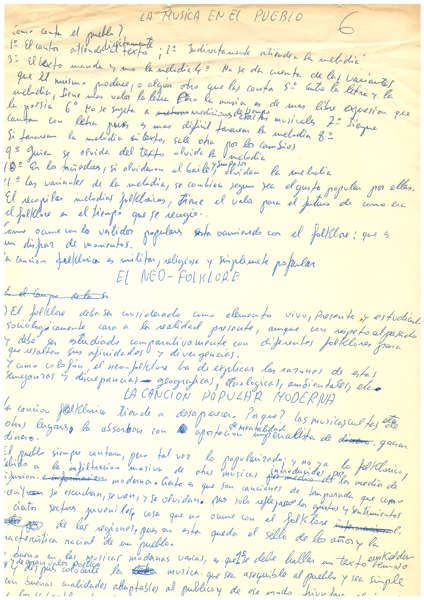 LA MUSICA EN EL PUEBLO
6
¿Como canta el pueblo?
1º El cantor atiende directamente al texto; 2º Indirectamente atiende a la melodia
3º El texto manda y no la melodia 4º No se da cuenta de las variantes
que el mismo produce, o algun otro que les canta 5º entre la letra y la
melodia, tiene mas valor la letra. Pero la musica es de mas libre expresion que
la poesia 6º No se sujeta a musicales 7º Sigue
cantan con letra pues es mas dificil tararear la melodia 8º
Si tararean la melodia sin texto, sale otra por los cambios
9º Quien se olvida del texto olvida la melodia
10º En las si olvidaron el baile olvidan la melodia
11º Las variantes de la melodia, se cambian segun sea el gusto popular por ellas.
El recopilar melodias folkloricas, tiene el valor para el futuro de como era
el folklore en el tiempo que se recogio.
Como ocurre con los vestidos populares esta ocurriendo con el folklore: que es
un disfraz de momentos.
La cancion folklorica es militar, religiosa y simplemente popular
EL NEO-FOLKLORE
El folklore debe ser considerado como elemento vivo, presente y estudiado
sociologicamente cara a la realidad presente, aunque con respeto al pasado
y debe ser estudiado comparativamente con diferentes folklores para
que resalten sus afinidades y divergencias.
Y como colofón, el neo-folklore ha de explicar las razones de estas
semejanzas y discrepancias geograficas, ecologicas, ambientales, etc
LA CANCION POPULAR MODERNA
La cancion folklorica tiende a desaparecer. Porque? las musicas cultas de
otros lugares, la absorben con aportación imperialista de ganar
dinero.
El pueblo siempre canta, pero tal vez lo popularizado, y no ya lo folklorico,
debido a la infiltracion masiva de otras musicas introducidas por los medios de
difusion moderna. Cierto es que son canciones de temporada que como
se escuchan, se van, y se olvidan. pues solo reflejan los gustos y sentimientos
de ciertos sectores juveniles, cosa que no ocurre con el folklore
de las regiones, pues en esta queda el sello de los años y la
caracteristica racial de un pueblo.
Lo bueno en las musicas modernas vascas, es que se debe hallar un texto euskaldun
y de gran valor poetico
y des pues colocarle la musica, que sea asequible al pueblo y sea simple
con buenas cualidades adaptables al publico y de ese modo